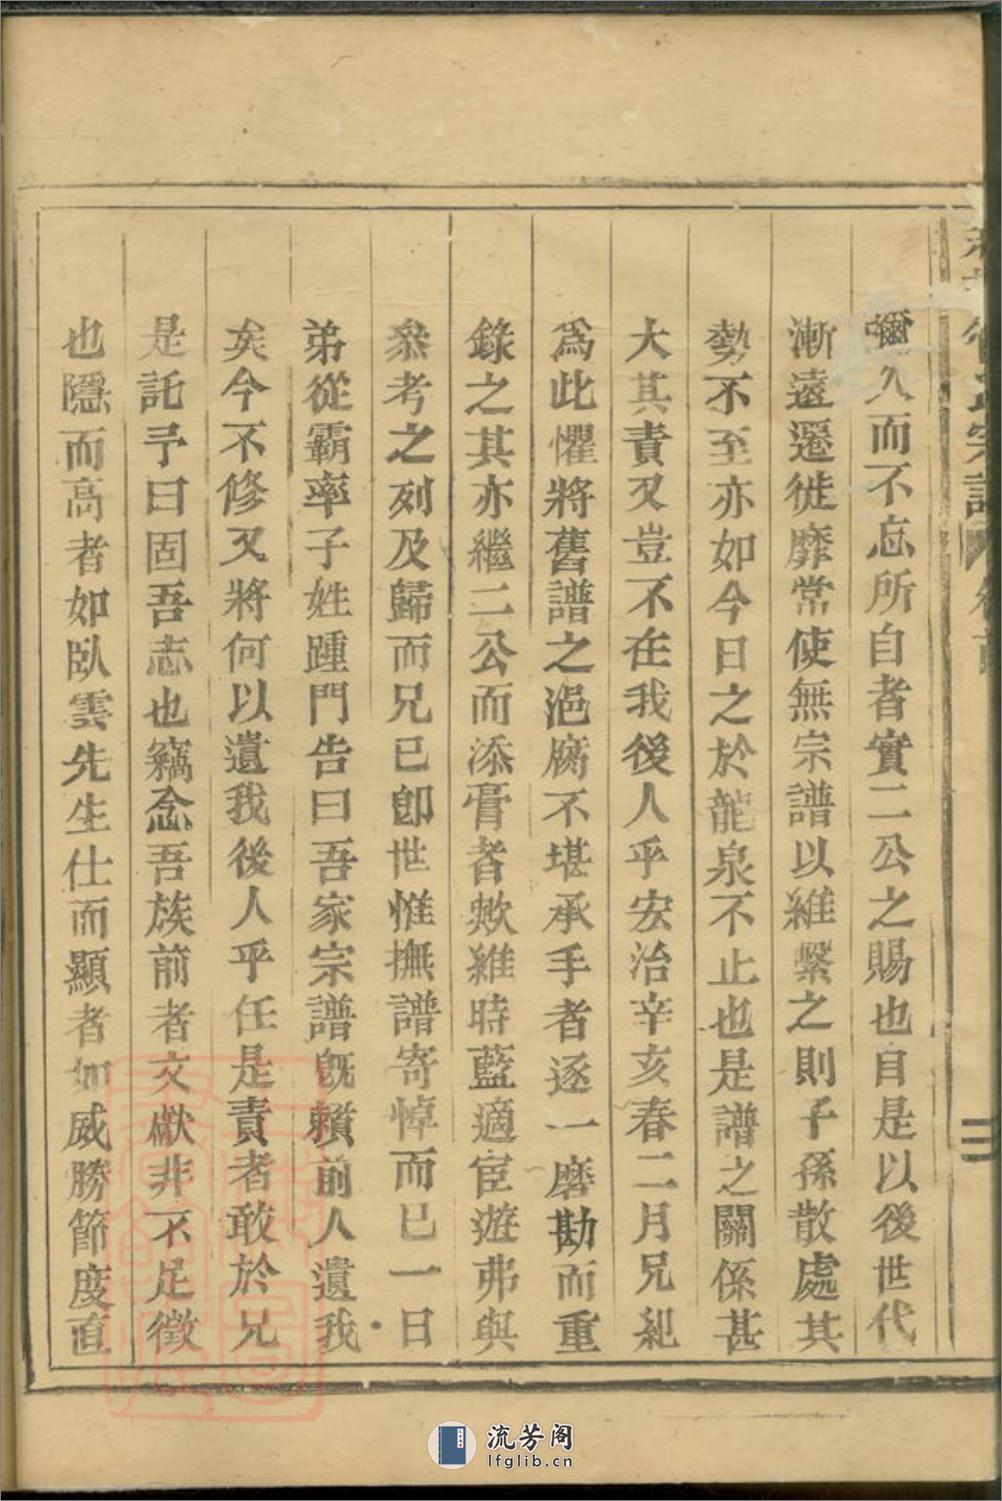 彌久而不忘所自者實二公之賜也自是以後世代
漸遠遷徙靡常使無宗譜以維繫之則子孫散處其
勢不至亦如今日之於龍泉不止也是譜之關係甚
大其責又豈不在我後人乎宏治辛亥春二月兄紀
為此懼將舊譜之浥腐不堪承手者逐一磨勘而重
錄之其亦繼二公而添膏者歟維時藍適宦遊弗與
叅考之列及歸而兄已卽世惟撫譜寄悼而已一日
弟從霸率子姓踵門告曰吾家宗譜旣賴前人遺我
矣今不修又將何以遺我後人乎任是責者敢於兄
是託予曰固吾志也竊念吾族前者文獻非不足徵
也隱而高者如臥雲先生仕而顯者如威勝節度直
宗譜
二
流芳阁
lfglib.cn